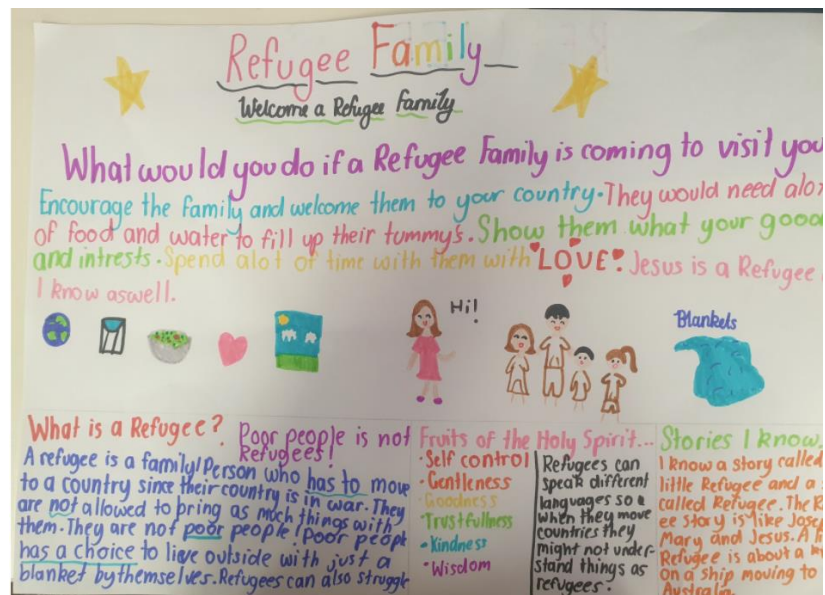 Refugee Family
Welcome a Refugee family
What would you do if a Refugee Family is coming to visit you
Encourage the family and welcome them to your country. They would need alot
of food and water to fill up their tummy's. Show them what your gooo
and intrests. Spend alot of time with them with LOVE. Jesus is a Refugee
I know aswell.
Hi!
Blankets
What is a Refugee?
A refugee is a family/Person who has to move
to a country since their country is in war. They
are not allowed to bring as much things with
them. They are not poor people! Poor people
has a choice to live outside with just a
blanket by themselves. Refugees can also struggle
Poor people is not
Refugees!
Fruits of the Holy Spirit...
•Self control
•Gentleness
•Goodness
•Trustfullness
•Kindness
•Wisdom
Refugees can
speak different
languages so
when they move
countries they
might not under-
stand things as
refugees.
Stories I know
I know a story called
little Refugee and a
called Refugee. The
ee story is like Jose
Mary and Jesus. A
Refugee is about a
on a ship moving to
Australia.